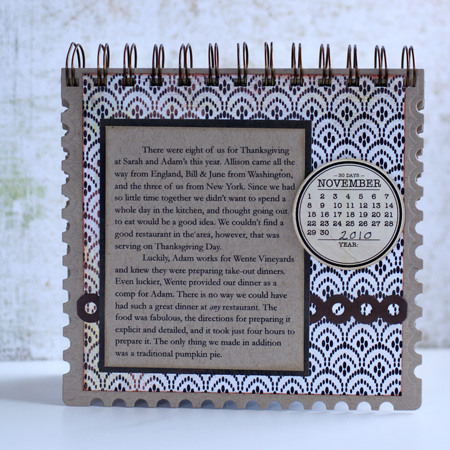 There were eight of us for Thanksgiving
at Sarah and Adam's this year. Allison came all the
way from England, Bill & June from Washington,
and the three of us from New York. Since we had
so little time together we didn't want to spend a
whole day in the kitchen, and thought going out
to eat would be a good idea. We couldn't find a
good restaurant in the area, however, that was
serving on Thanksgiving Day.
Luckily, Adam works for Wente Vineyards
and knew they were preparing take-out dinners.
Even luckier, Wente provided our dinner as a
comp for Adam. There is no way we could have
had such a great dinner at any restaurant. The
food was fabulous, the directions for preparing it
explicit and detailed, and it took just four hours to
prepare it. The only thing we made in addition
was a traditional pumpkin pie.
—30 DAYS—
NOVEMBER
1 2 3 4 5 6 7
8 9 10 11 12 13 14
15 16 17 18 19 20 21
22 23 24 25 26 27 28
29 30 2010
YEAR: